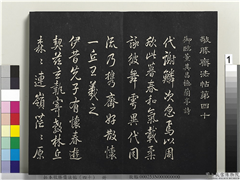 敬勝齋法帖第四十
御臨董其昌蘭亭詩
代謝鱗次忽焉以周
欣此暮春和氣載柔
詠彼舞雩異代同
流乃攜齊好散懷
一丘王羲之
伊昔先子有懷春遊
契茲言執寄傲林丘
森〻連嶺茫〻原